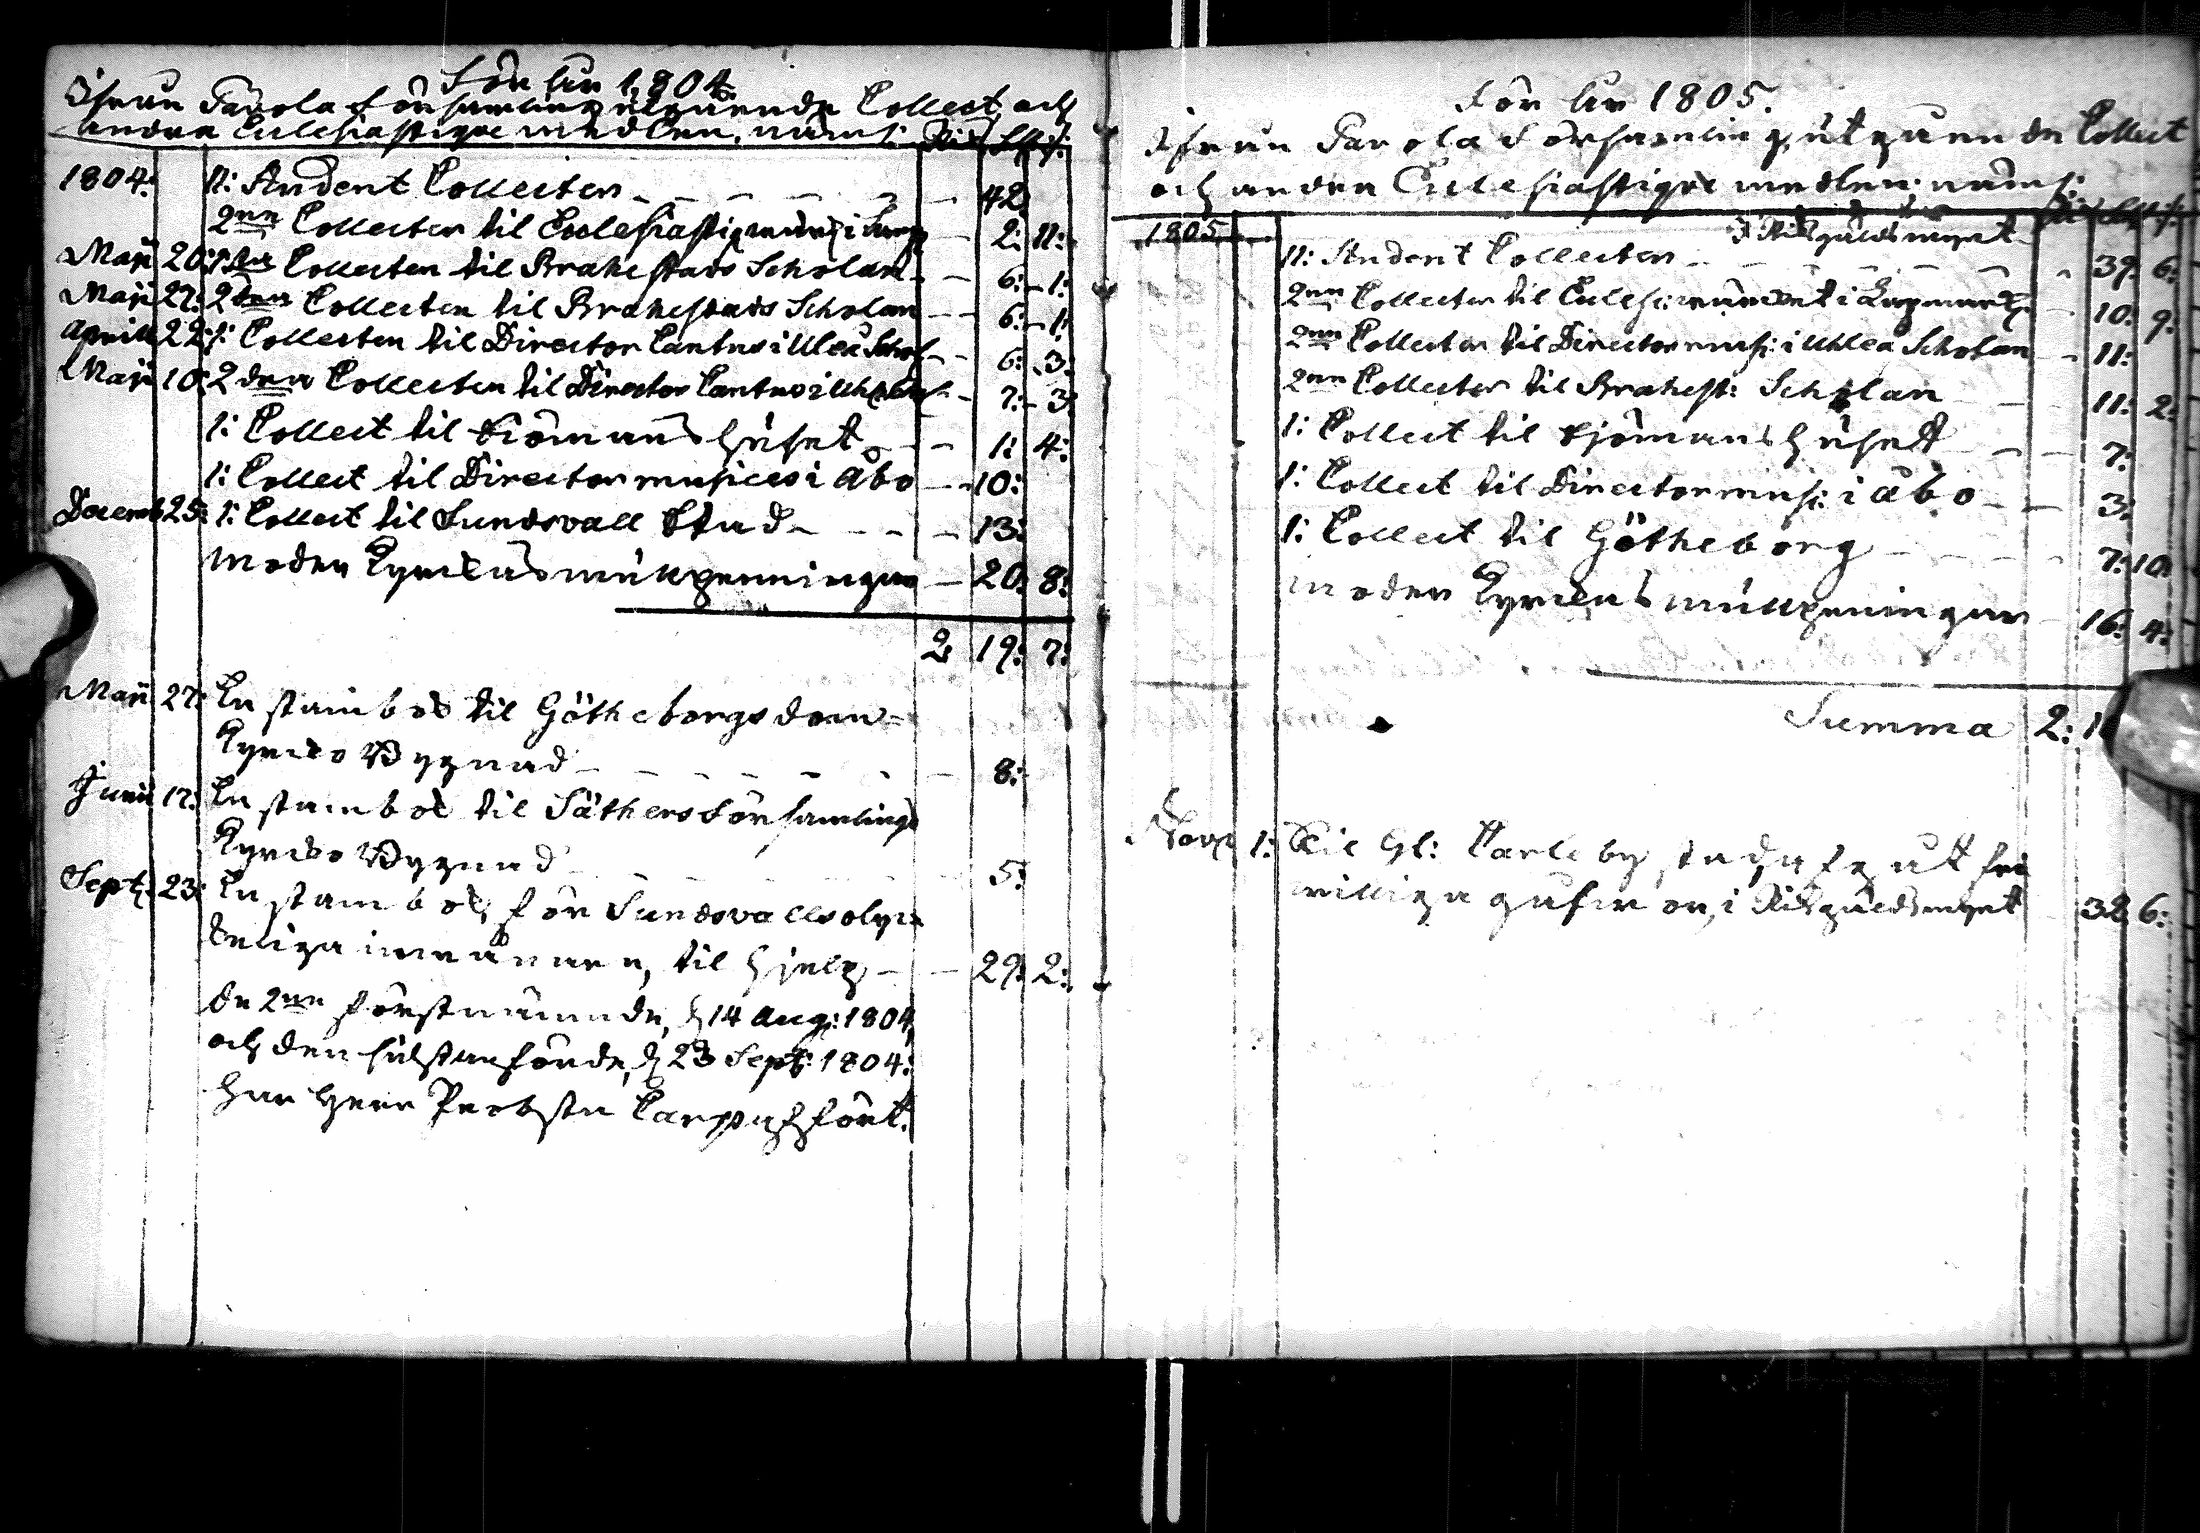 För år 1804.
Ifrån Pavola församling utgående Collect, och
andra Eclesiastique medlen, näml:
Rd Sk rst:
1804: 11: Andent Collecter 42
2ne Collecter til Eclesiastiqverket i 2: 11:
Maji 20: 1sta Collecten til Brahestads Scholan 6: 1:
Maji 27: 2den Collecten til Brahestads Scholan 6: 1:
Aprill 22: 1: Collecten til Director Cantus i Uleå Schol 6: 3:
Maji 10: 2den Collecten til Director Cantus i 7: 3:
1: Collect til Siömans Huset 1: 4:
1: Collect til Director musices i Åbo 10:
Decemb 25: 1: Collect til Sundsvall Stad 13:
Moder Kyrckans mulcpenningar 20: 8:
2 19: 7:
Maji 27: En stambok til Götheborgs dom=
Kyrcko Bygnad 8:
Junii 17: En stambok til Säthers församlings
Kyrcko Bygnad 5:
Sept: 23: En stambok för Sundsvalls olyck
keliga innevånare, til hjelp 29: 2:
de 2ne förstnämnde, d 14 Aug: 1804,
och den sidstanförde, d 23 Sept: 1804:
har Herr Probsten Carp affört.
För år 1805.
Ifrån Pavola Församling utgående Collect
och andra Eclesiastique medlen näml:
1805 i Riksgälds mynt
11: Andent Collecter 39: 6:
2ne Collecter til Eclesi: värcket i Lapmark 10: 9:
2ne Collecter til Director mus: i Uhleå Scholan 11:
2ne Collecter til Brahest: Scholan 11: 2:
1: Collect til Sjömans Huset 7:
1: Collect til Director mus: i Åbo 3:
1: Collect til Götheborg 7: 10
Moder Kyrckans mulcpeningar 16: 4:
Summa 2:
Nov 1: Til Gl: Carleby stad utgått fri
villiga gåfvor, i Riksgälds mynt 32 6: